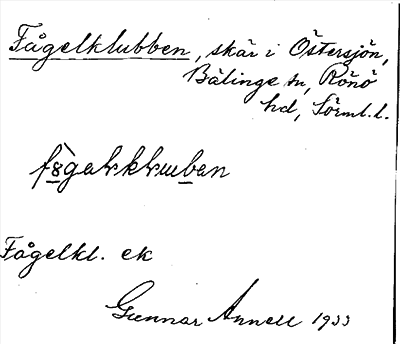 Fågelklubben, skär i Östersjön,
Bälinge sn, Rönö
hd, Sörml. l.
Fågelkl. ek
Gunnar Annell 1933